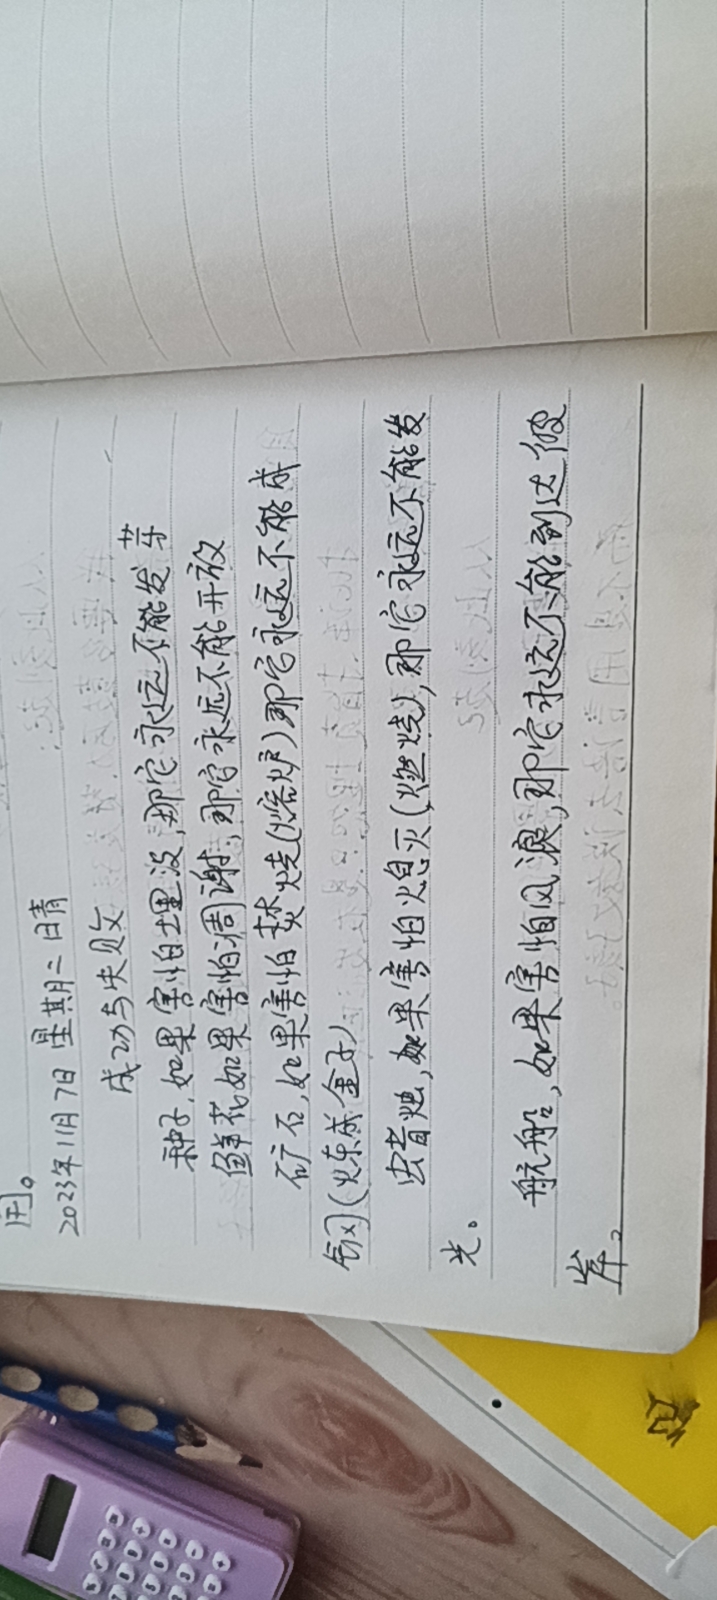 用。
2023年11月7日 星期二 日晴
成功与失败
种子,如果害怕埋没,那它永远不能发芽
鲜花如果害怕凋谢,那它永远不能开放
矿石,如果害怕焚烧(熔炉)那它永远不能成
钢(炼成金子)
蜡烛,如果害怕熄灭(燃烧),那它永远不能发
光。
航船,如果害怕风浪,那它永远不能到达彼
岸。